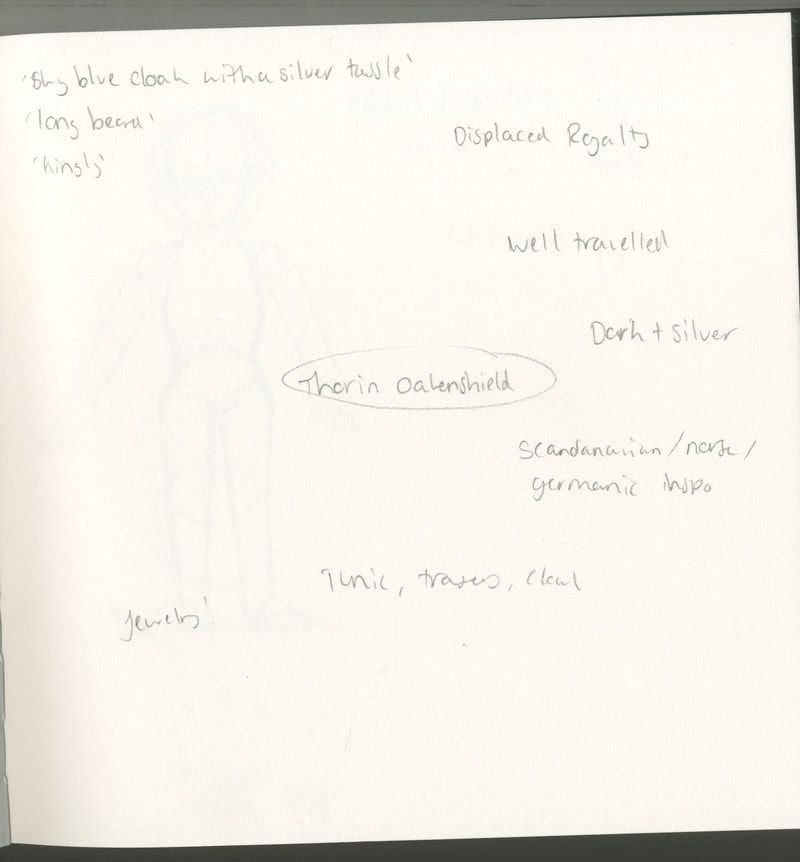 'Sky blue cloak with a silver tassle'
'long beard'
'Kingly'
Displaced Royalty
well travelled
Dark + silver
Thorin Oakenshield
Scandanavian / norse /
germanic inspo
Tunic, trousers, cloak
jewelry